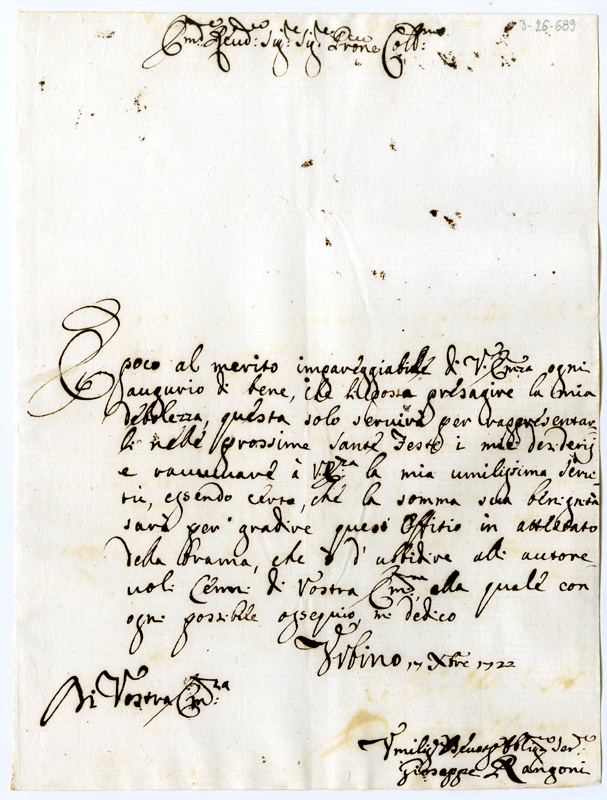 3-26-689
Em.mo Reud.mo Sig.re Sig.re Prone Coll.mo
E poco al merito impareggiabile di V. Em.za ogni
augurio di bene, che le possa presagire la mia
debolezza, questa solo servirà per rappresentar-
li nelle prossime Sante Feste i miei desiderij
e ravvivare à V. Em.za la mia umilissima servi-
tù, essendo certo, che la somma sua benignità
sarà per gradire quest'Offitio in attestato
della brama, che ò d'ubbidire alli autore-
voli Cenni di Vostra Em.za, alla quale con
ogni possibile ossequio, mi dedico
Urbino 17 Xbre 1722
Di Vostra Em.za
Umiliss.o Devotiss.o Obligat.o Ser.re
Gioseppe Rangoni